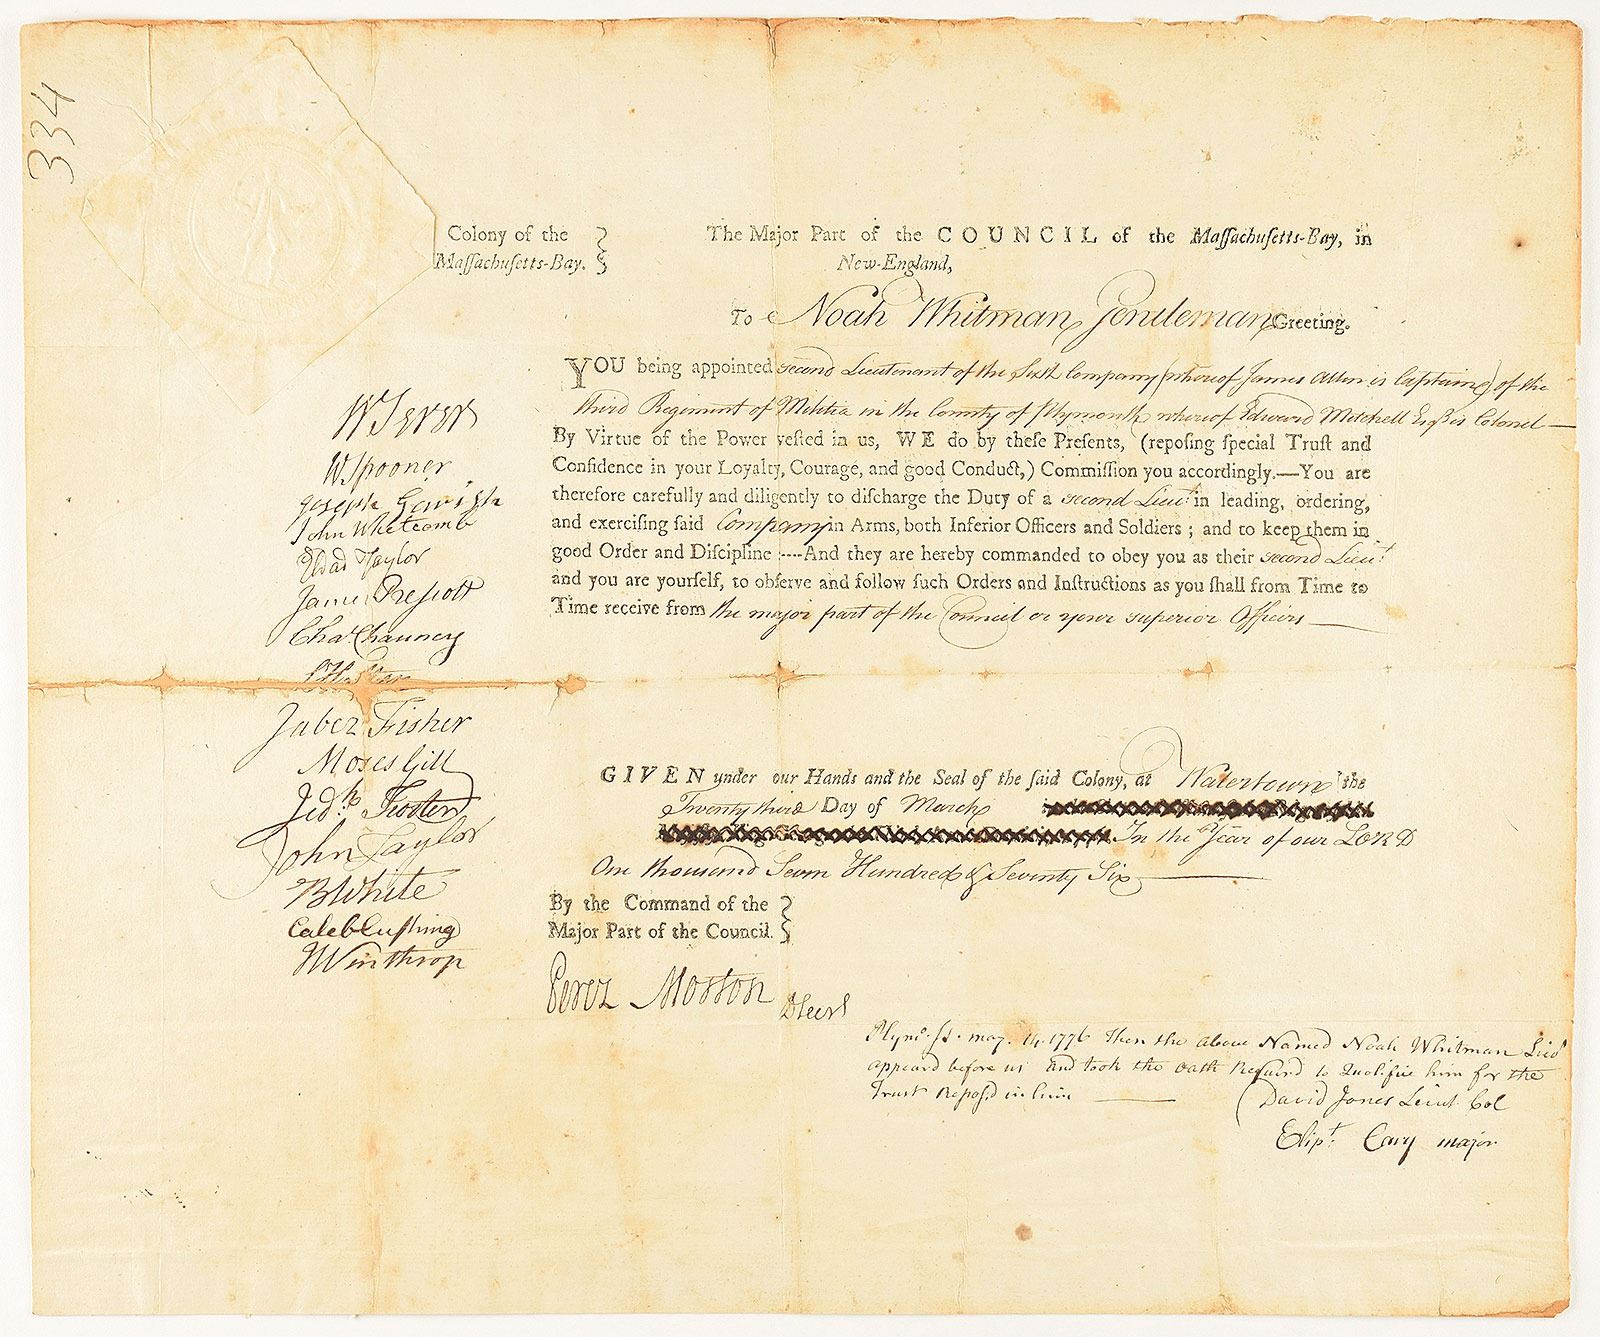 334
Colony of the
Massachusetts-Bay.
The Major Part of the COUNCIL of the Massachusetts-Bay, in
New-England,
To Noah Whitman Gentleman Greeting.
YOU being appointed second Lieutenant of the Sixth Company (whereof James Allen is Captain) of the
third Regiment of Militia in the County of Plymouth whereof Edward Mitchell Esqr is Colonel —
By Virtue of the Power vested in us, WE do by these Presents, (reposing special Trust and
Confidence in your Loyalty, Courage, and good Conduct,) Commission you accordingly.—You are
therefore carefully and diligently to discharge the Duty of a second Lieut in leading, ordering,
and exercising said Company in Arms, both Inferior Officers and Soldiers ; and to keep them in
good Order and Discipline :----And they are hereby commanded to obey you as their second Lieut
and you are yourself, to observe and follow such Orders and Instructions as you shall from Time to
Time receive from the major part of the Council or your superior Officers —
W Sever
W Spooner
Joseph Gerrish
John Whetcomb
Eldad Taylor
James Prescott
Cha Chauncy
S Holten
Jabez Fisher
Moses Gill
Jedh Foster
John Taylor
B White
Caleb Cushing
J Winthrop
GIVEN under our Hands and the Seal of the said Colony, at Watertown the
Twenty third Day of March
In the Year of our LORD
One thousand Seven Hundred & Seventy Six —
By the Command of the
Major Part of the Council.
Perez Morton DSecry
Plymo. ss. may. 14. 1776 Then the above Named Noah Whitman Liut
appeard before us and took the oath Requird to Qualifie him for the
Trust Reposd in him —
David Jones Lieut Col
Elipt. Cary major